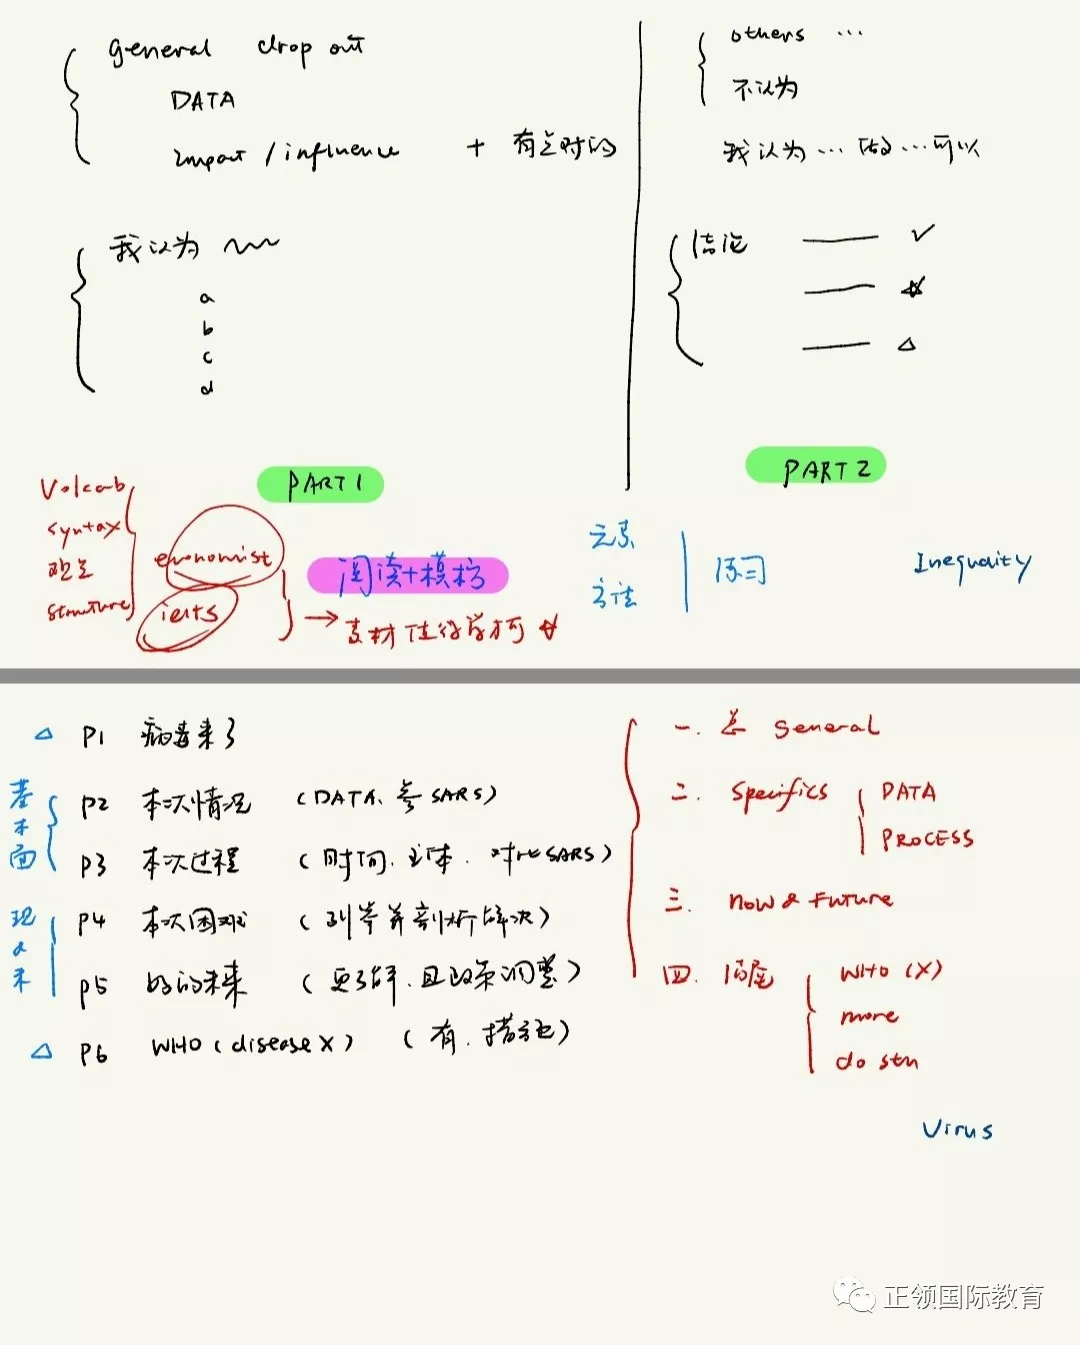 general drop out
DATA
impact / influence + 有些时候
我认为
a
b
c
d
PART 1
others ...
不认为
我认为 ... 做 ... 可以
结论
PART 2
Volcab
syntax
观点
structure
economist
ielts
阅读+模档
素材 值得学习
元素
方法
练习
Inequality
P1 病毒来了
基本面
P2 本次情况 (DATA、参SARS)
P3 本次过程 (时间、主体、对比SARS)
现&未
P4 本次困难 (列举并剖析解决)
P5 的未来 (更了解,且政策调整)
P6 WHO (disease X) (有、措施)
一. 总 General
二. Specifics DATA
PROCESS
三. now & Future
四. 结尾 WHO (X)
more
do sth
Virus
正领国际教育